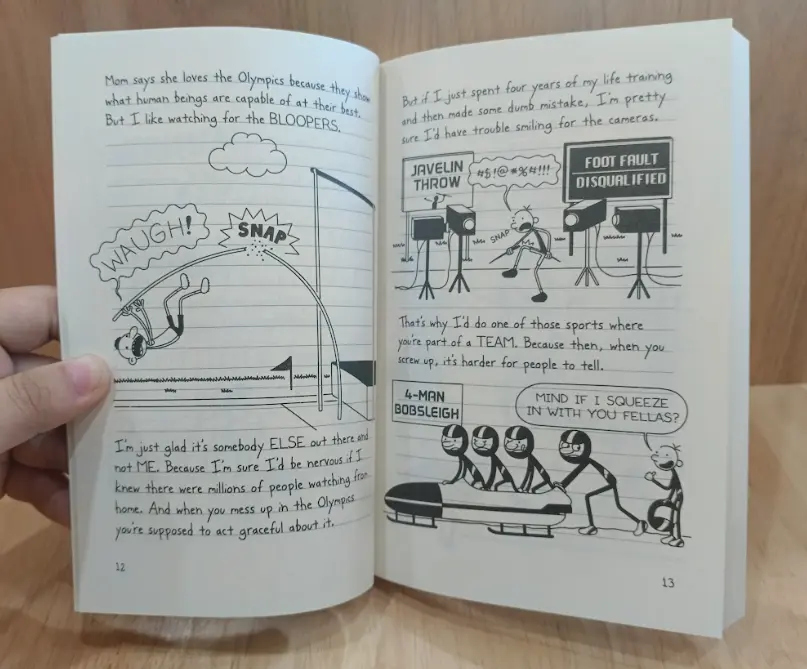 Mom says she loves the Olympics because they show
what human beings are capable of at their best.
But I like watching for the BLOOPERS.
WAUGH!
SNAP
I'm just glad it's somebody ELSE out there and
not ME. Because I'm sure I'd be nervous if I
knew there were millions of people watching from
home. And when you mess up in the Olympics
you're supposed to act graceful about it.
12
But if I just spent four years of my life training
and then made some dumb mistake, I'm pretty
sure I'd have trouble smiling for the cameras.
JAVELIN
THROW
#$!@*%#!!!
FOOT FAULT
DISQUALIFIED
SNAP
That's why I'd do one of those sports where
you're part of a TEAM. Because then, when you
screw up, it's harder for people to tell.
4-MAN
BOBSLEIGH
MIND IF I SQUEEZE
IN WITH YOU FELLAS?
13